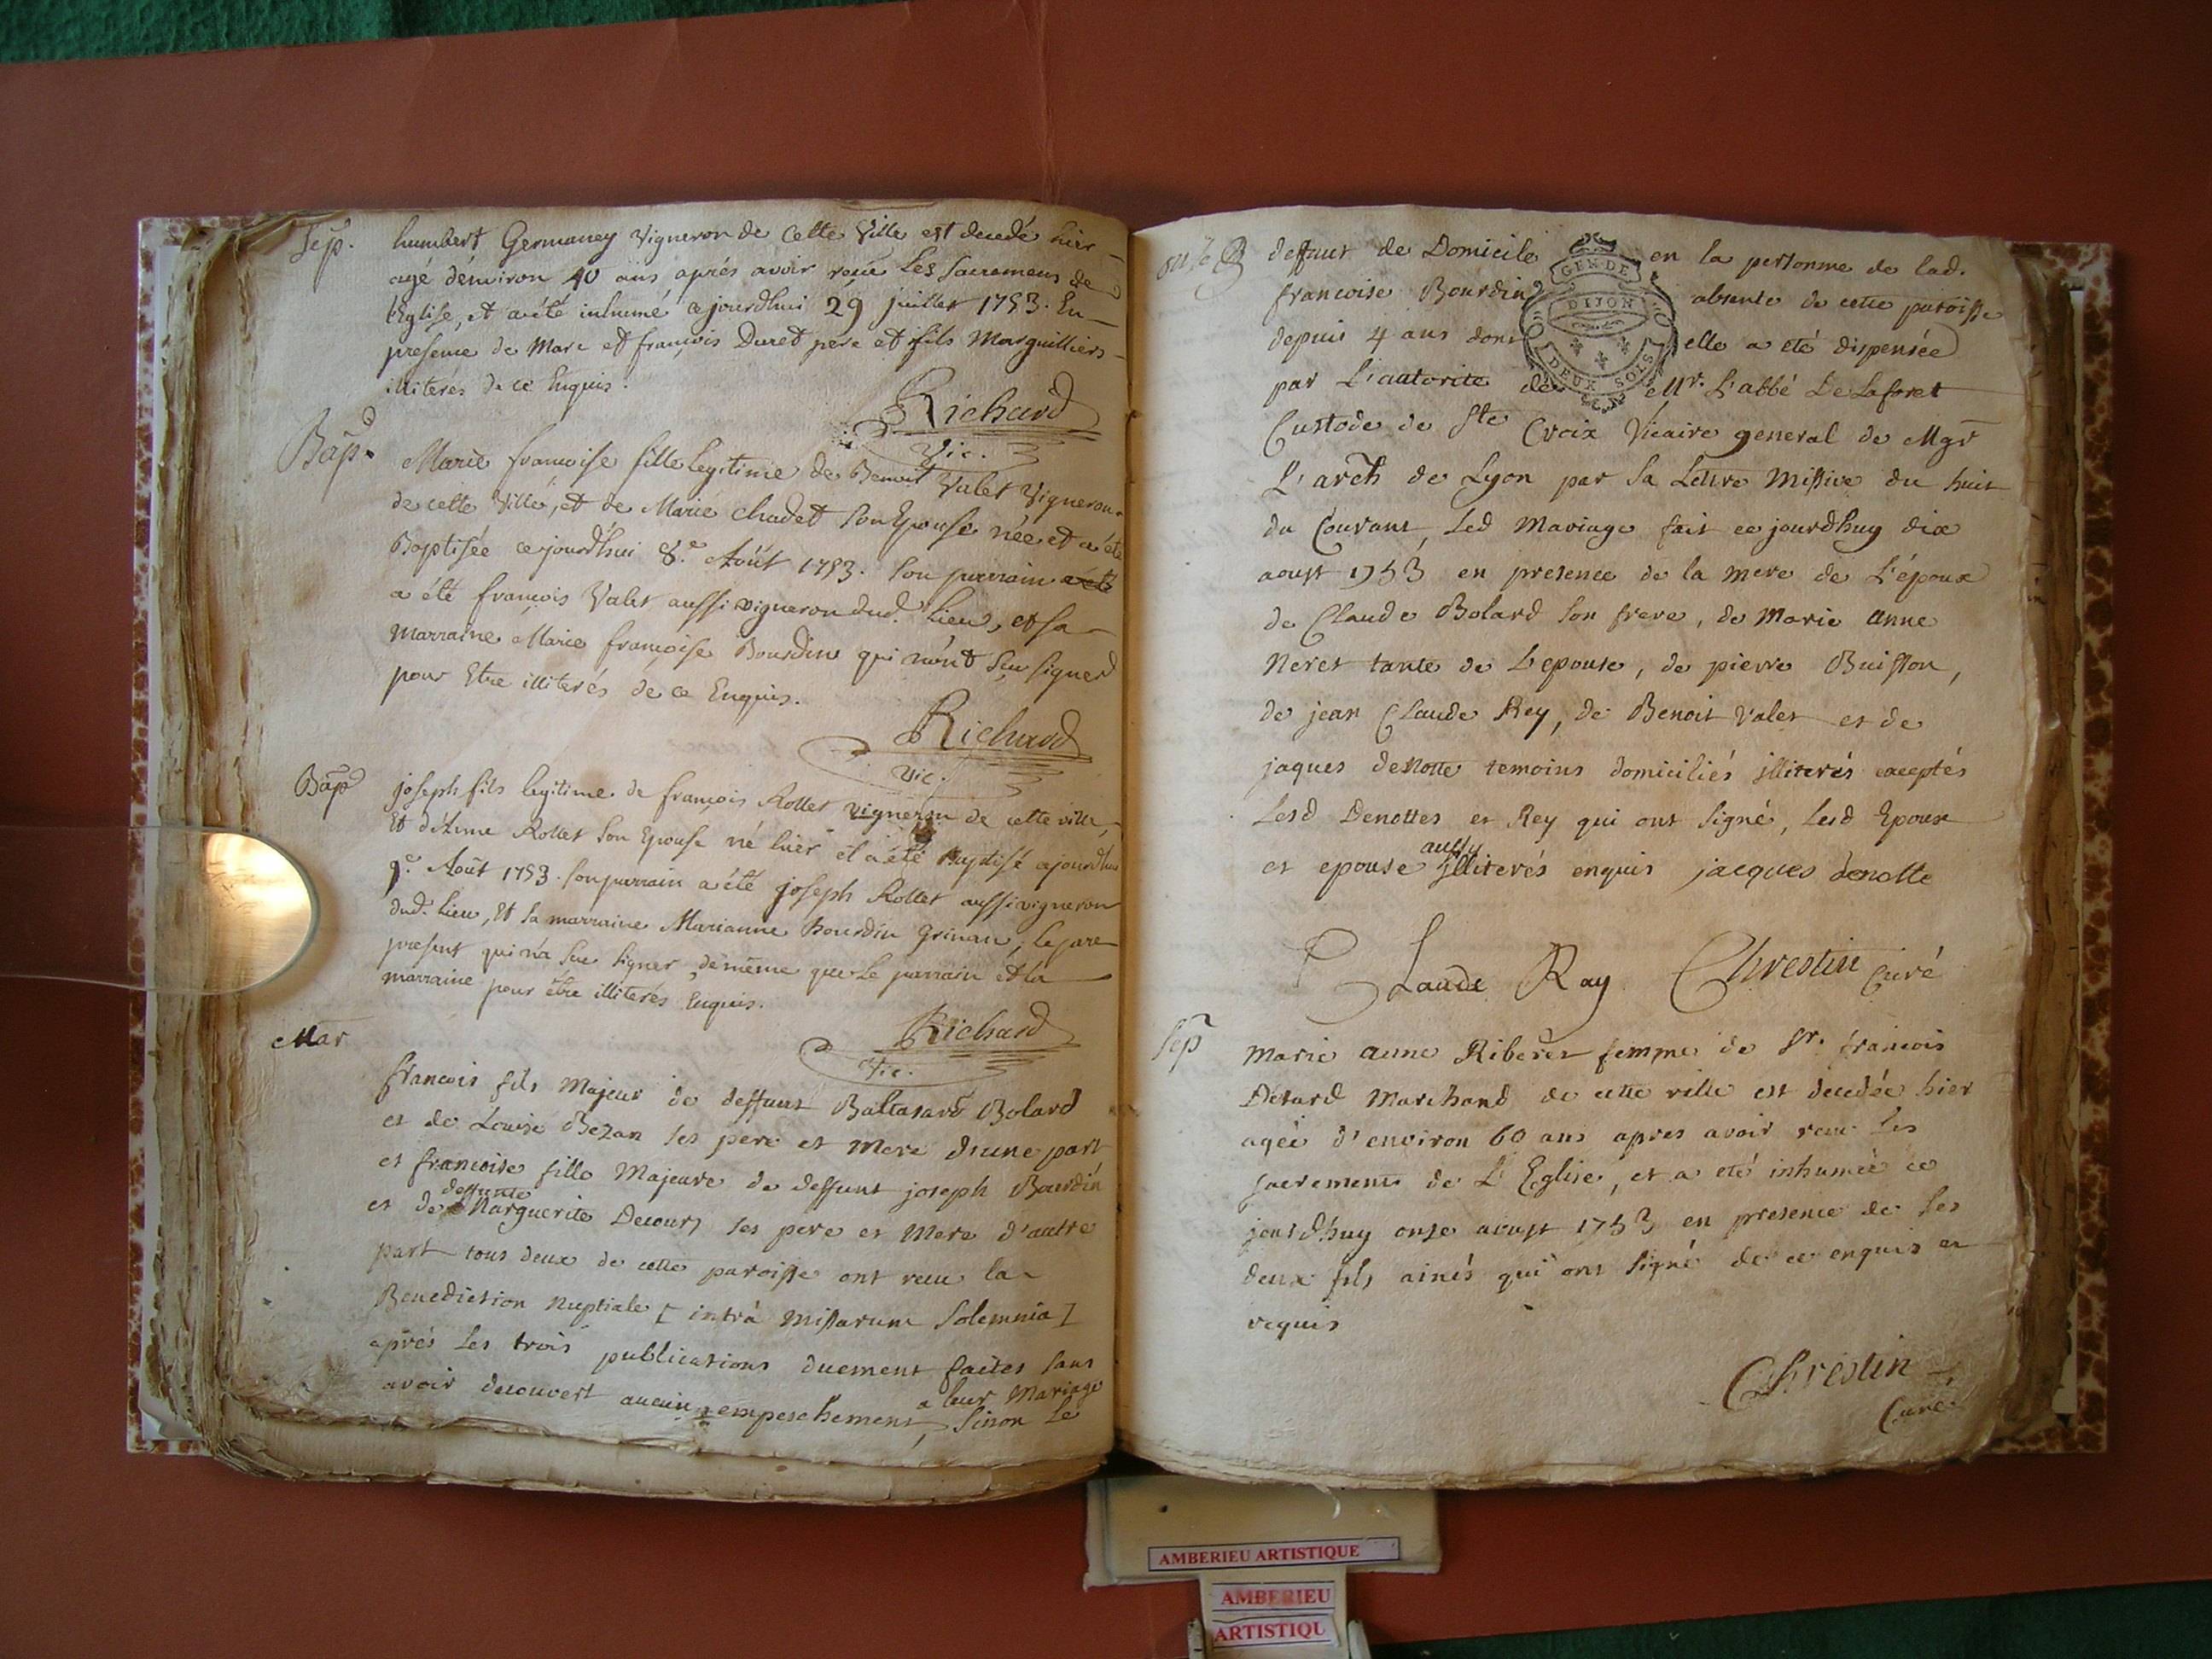 Sep. humbert Germaney Vigneron de Cette Ville est decedé hier
agé d'environ 40 ans, aprés avoir reçu Les Sacremens de
L'Eglise, et a été inhumé cejourdhui 29 juillet 1753. En
presence de Marc et françois Duret pere et fils Marguilliers
illiterés de ce Enquis.
Richard
Vic.
Bap. Marie françoise fille legitime de Benoit Valet Vigneron
de cette Ville, et de Marie chudet Son Epouse née et a été
Baptisée cejourdhui 8.e Août 1753. Son parrain
a été françois Valet aussi vigneron dud. Lieu, et Sa
Marraine Marie françoise Bourdin qui n'ont Seu Signer
pour Etre illiterés de ce Enquis.
Richard
Vic.
Bap joseph fils legitime de françois Rollet vigneron de cette ville,
Et d'Anne Rollet Son Epouse né hier et a été Baptisé cejourdhui
9.e Août 1753. Son parrain a été joseph Rollet aussi vigneron
dud. Lieu, Et Sa marraine Marianne Bourdin Grinan, le pere
present qui n'a Seu Signer de même que Le parrain et la
marraine pour être illiterés Enquis.
Richard
Vic.
Mar
francois fils Majeur de deffunt Baltasard Bolard
et de Louise Bezan ses pere et Mere d'une part
et francoise fille Majeure de deffunt joseph Bourdin
deffunte
et de Marguerite Decours ses pere et Mere d'autre
part tous deux de cette paroisse ont recu la
Benediction Nuptiale [intrà Missarum Solemnia]
aprés Les trois publications duement faites sans
a leur Mariage
avoir decouvert aucun empeschement, Sinon Le
deffaut de Domicile en la personne de lad.
francoise Bourdin absente de cette paroisse
depuis 4 ans dont elle a eté dispensée
par L'autorite de Mr. L'abbé De Laforet
GEN DE
DIJON
DEUX SOLS
Custode de Ste Croix Vicaire general de Mgr
L'arch de Lyon par Sa Lettre Missive du huit
du Courant, Led Mariage fait ce jourdhuy dix
aoust 1753 en presence de la mere de L'époux
de Claude Bolard Son frere, de Marie Anne
Neret tante de L'epouse, de pierre Buisson,
de jean Claude Rey, de Benoit Valet et de
jaques denotte temoins domiciliés illiterés exceptés
Lesd Denottes et Rey qui ont Signé, Lesd Epoux
aussy
et epouse illiterés enquis jacques denotte
Claude Ray Chrestin Curé
Sep Marie anne Riberet femme de Sr. francois
Détard Marchand de cette ville est decedée hier
agée d'environ 60 ans apres avoir recu Les
sacrements de L'Eglise, et a eté inhumée ce
jourdhuy onze aoust 1753 en presence de Ses
deux fils ainés qui ont Signé de ce enquis et
requis
Chrestin
Curé
AMBERIEU ARTISTIQUE
AMBERIEU
ARTISTIQU